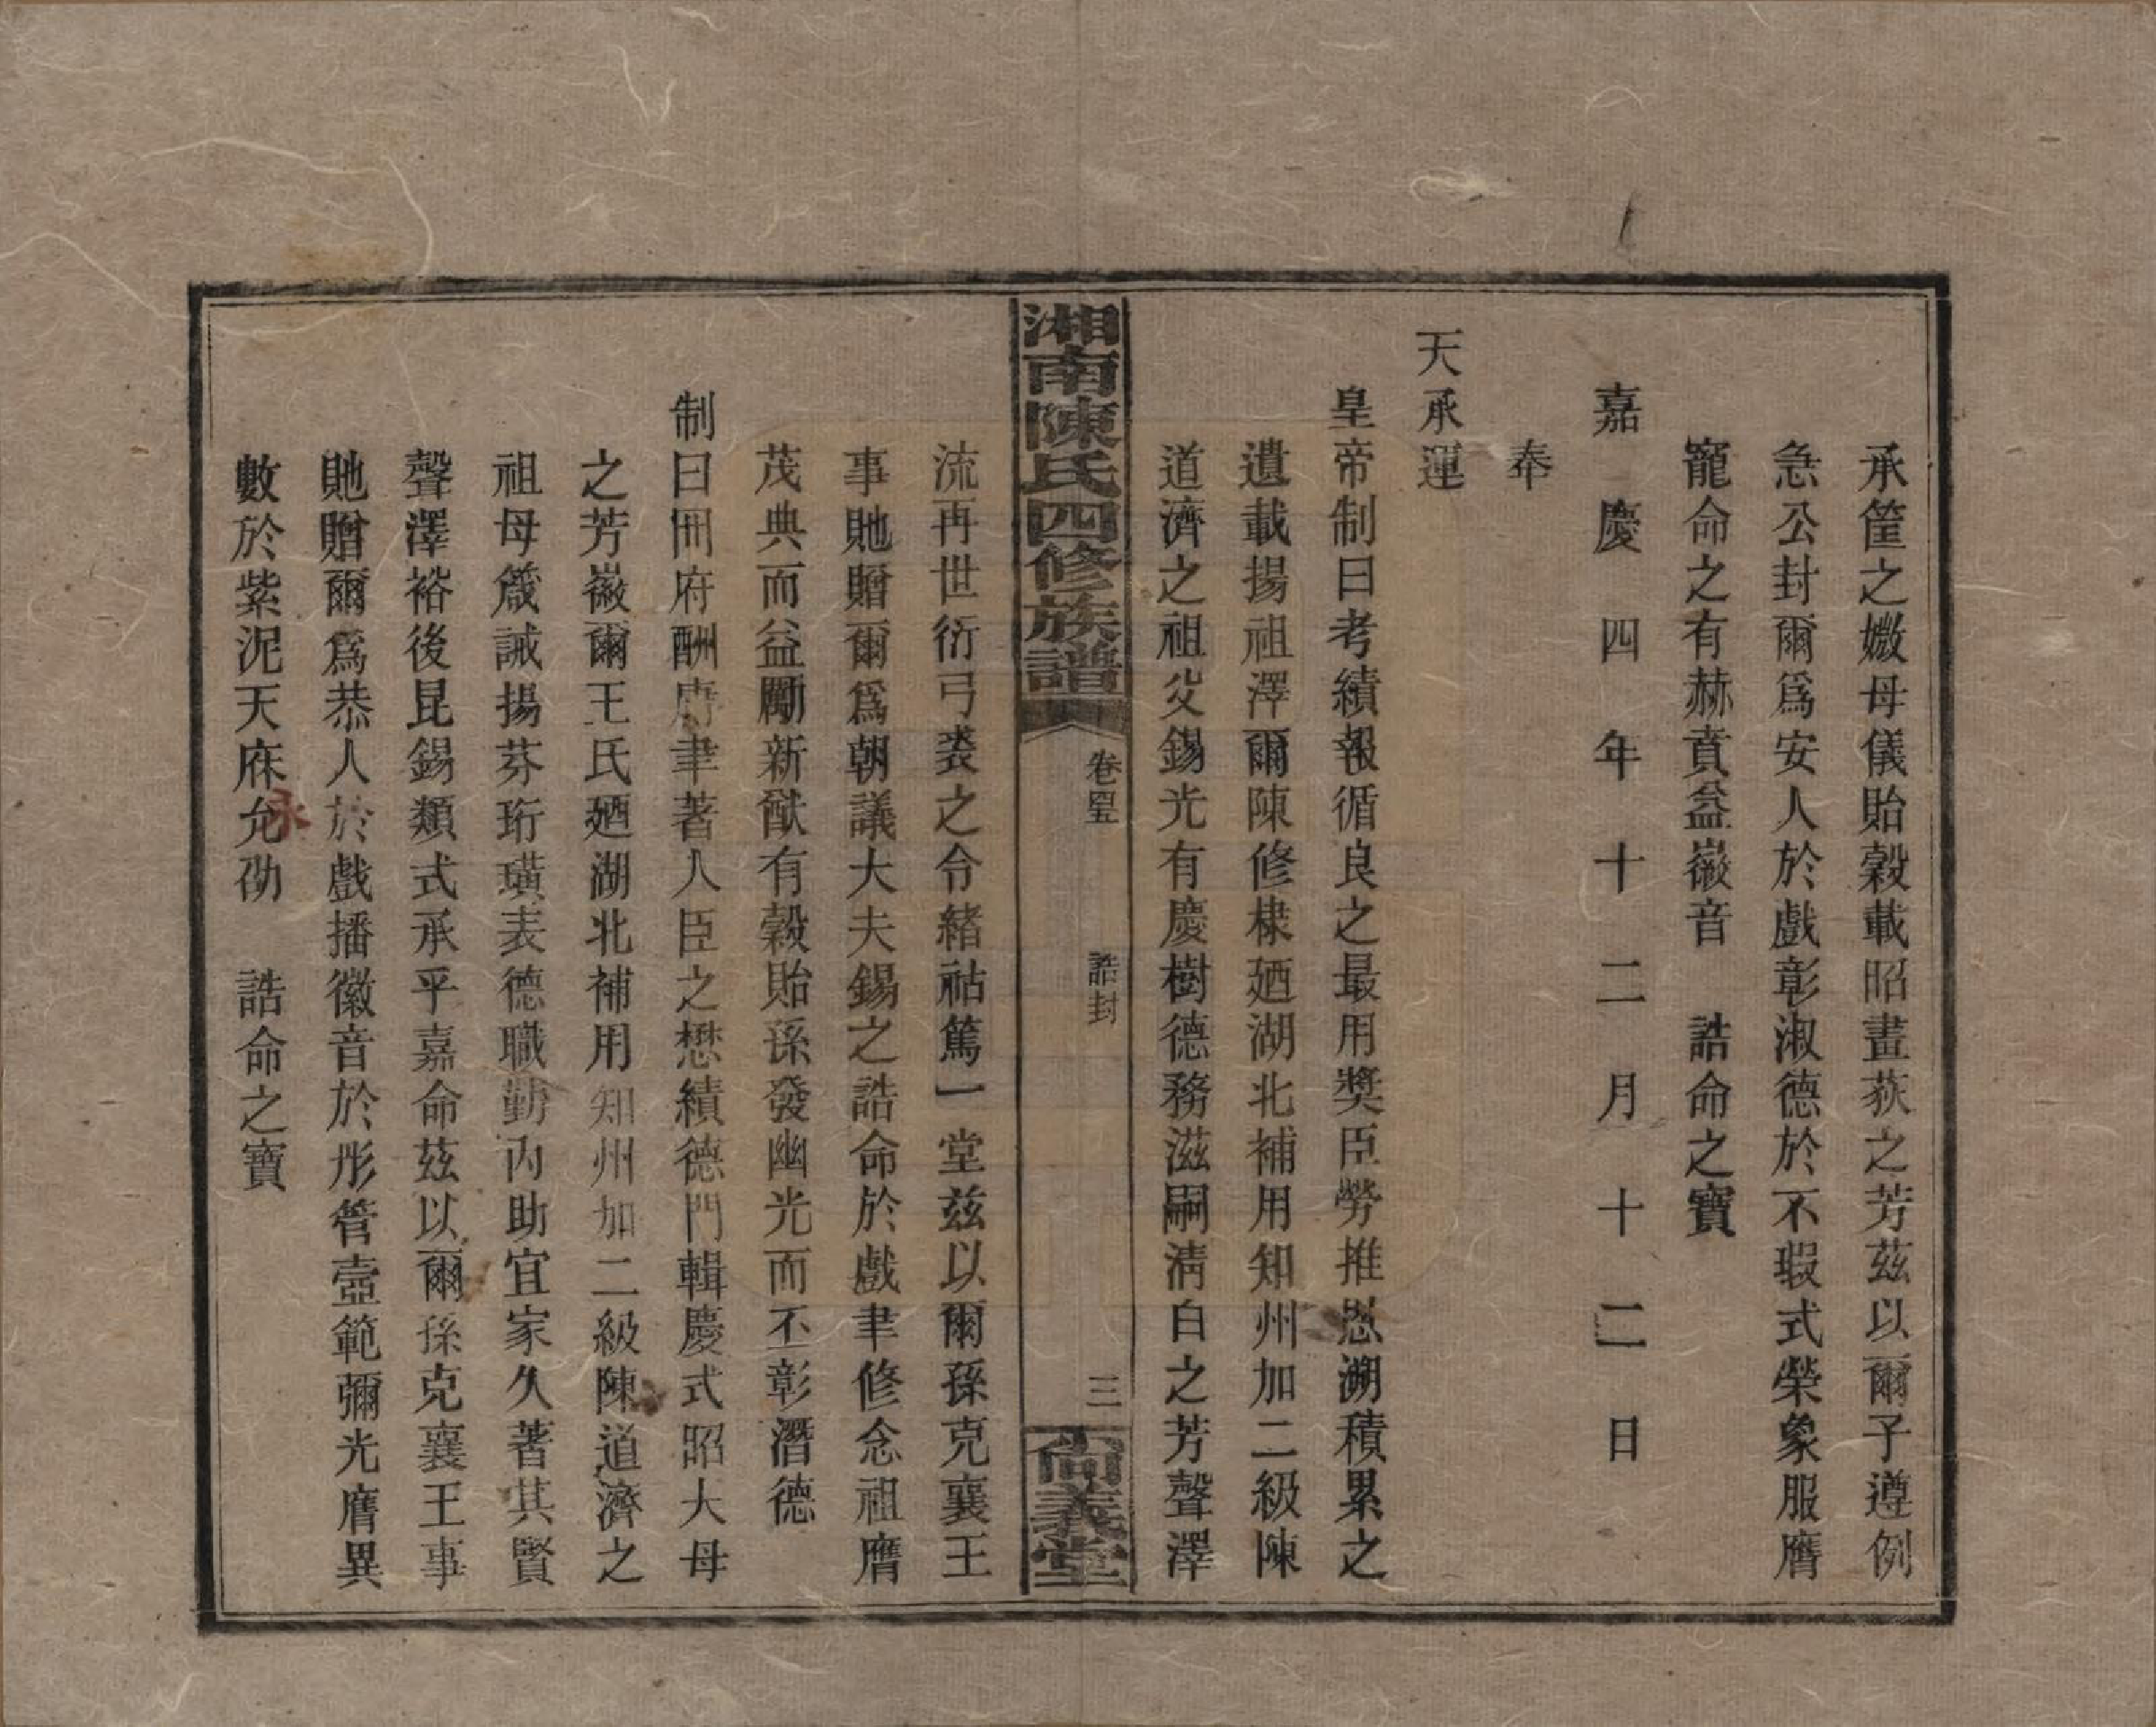 承筐之媺母儀貽穀載昭畫荻之芳茲以爾子遵例
急公封爾爲安人於戲彰淑德於不瑕式榮象服膺
寵命之有赫賁益徽音　誥命之寶
嘉慶四年十二月十二日
奉
天承運
皇帝制曰考績報循良之最用獎臣勞推恩溯積累之
遺載揚祖澤爾陳修棣廼湖北補用知州加二級陳
道濟之祖父錫光有慶樹德務滋嗣淸白之芳聲澤
湘南陳氏四修族譜
卷四五
誥封
三
尙義堂
流再世衍弓裘之令緒祜篤一堂茲以爾孫克襄王
事貤贈爾爲朝議大夫錫之誥命於戲聿修念祖膺
茂典而益勵新猷有穀貽孫發幽光而丕彰潛德
制曰冊府酬庸聿著人臣之懋績德門輯慶式昭大母
之芳徽爾王氏廼湖北補用知州加二級陳道濟之
祖母箴誡揚芬珩璜表德職勤內助宜家久著其賢
聲澤裕後昆錫類式承乎嘉命茲以爾孫克襄王事
貤贈爾爲恭人於戲播徽音於彤管壼範彌光膺異
數於紫泥天庥允劭　誥命之寶